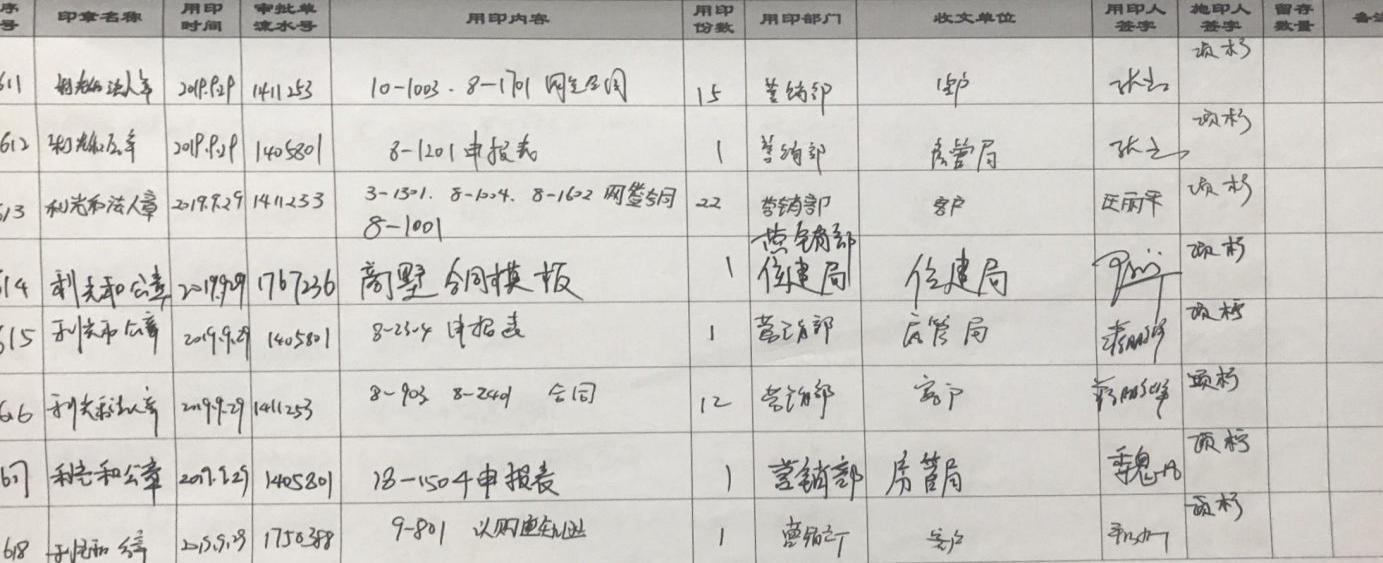 序号 印章名称 用印时间 审批单流水号 用印内容 用印份数 用印部门 收文单位 用印人签字 施印人签字 留存数量 备注
611 法人章 2019.9.29 1411253 10-1003. 8-1701 网签合同 15 营销部 客户 项杉
612 2019.9.29 1405801 8-1201 申报表 1 营销部 房管局 项杉
613 利光和法人章 2019.9.29 1411253 3-1301. 8-1004. 8-1602 网签合同 22 营销部 客户 项杉
8-1001
614 利光和公章 2019.9.29 1767236 商墅合同模板 1 营销部 住建局 住建局 项杉
615 利光和公章 2019.9.29 1405801 8-2304 申报表 1 营销部 房管局 项杉
616 利光和法人章 2019.9.29 1411253 8-903 8-2401 合同 12 营销部 客户 项杉
617 利光和公章 2019.9.29 1405801 18-1504申报表 1 营销部 房管局 项杉
618 利光和公章 2019.9.29 1750388 9-801 1 营销部 客户 项杉